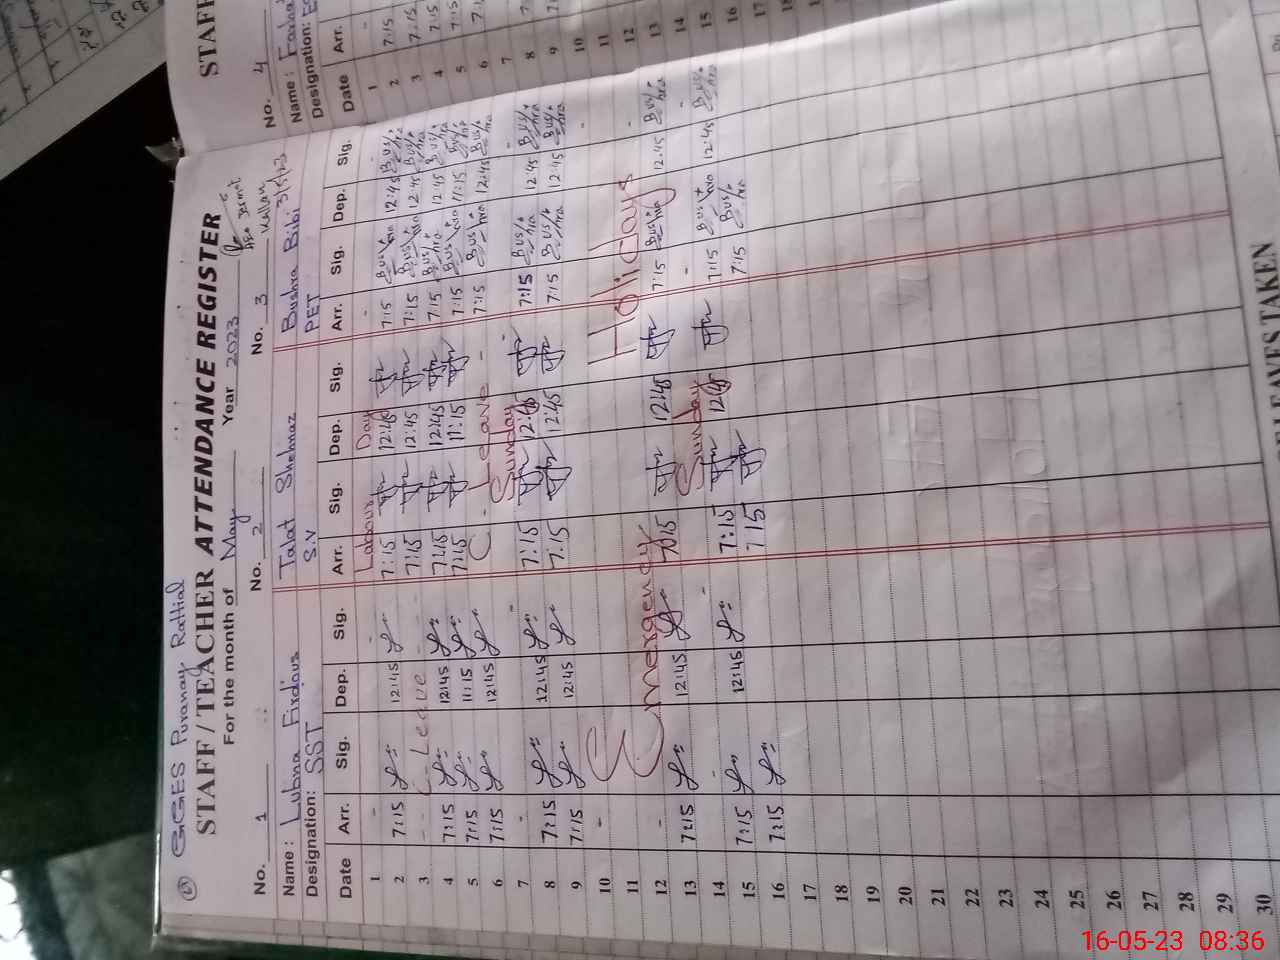 GGES Puranay Rattial
STAFF / TEACHER ATTENDANCE REGISTER
For the month of May Year 2023
No. 1 No. 2 No. 3
Name: Lubna Firdous Talat Shehnaz Bushra Bibi
Designation: SST S.V PET
Date Arr. Sig. Dep. Sig. Arr. Sig. Dep. Sig. Arr. Sig. Dep. Sig.
1 - - Labour Day - -
2 7:15 12:45 7:15 12:45 7:15 Bushra 12:45 Bushra
3 - - Leave - 7:15 12:45 7:15 Bushra 12:45 Bushra
4 7:15 12:45 7:15 12:45 7:15 Bushra 12:45 Bushra
5 7:15 11:15 7:15 11:15 7:15 Bushra 11:15 Bushra
6 7:15 12:45 C - Leave - 7:15 Bushra 12:45 Bushra
7 - - Sunday -
8 7:15 12:45 7:15 12:45 7:15 Bushra 12:45 Bushra
9 7:15 12:45 7:15 12:45 7:15 Bushra 12:45 Bushra
10 - -
11 Emergency Holidays
12 - -
13 7:15 12:45 7:15 12:45 7:15 Bushra 12:45 Bushra
14 - - Sunday - -
15 7:15 12:45 7:15 12:45 7:15 Bushra 12:45 Bushra
16 7:15 7:15 7:15 Bushra
17
18
19
20
21
22
23
24
25
26
27
28
29
30
LEAVES TAKEN
STAFF
No. 4
Name:
Designation:
Date Arr.
1 -
2 7:15
3 7:15
4 7:15
5 7:15
6
7
8
9
10
11
12
13
14
15
16
17
18
16-05-23 08:36